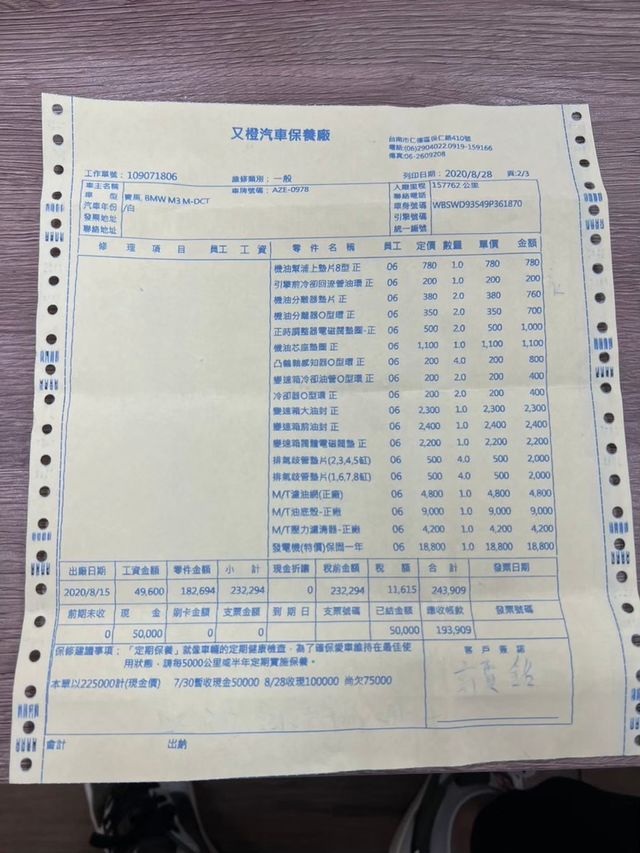 又橙汽車保養廠
台南市仁德區保仁路410號
電話:(06)2904022.0919-159166
傳真:06-2609208
工作單號：109071806 維修類別：一般 列印日期：2020/8/28 頁:2/3
車主名稱 車牌號碼：AZE-0978 入廠里程 157762 公里
車 型 寶馬, BMW M3 M-DCT 聯絡電話
汽車年份 /白 車身號碼 WBSWD93S49P361870
發票地址 引擎號碼
聯絡地址 統一編號
修 理 項 目 員工 工 資 零 件 名 稱 員工 定價 數量 單價 金額
機油幫浦上墊片8型 正 06 780 1.0 780 780
引擎前冷卻回流管油環 正 06 200 1.0 200 200
機油分離器墊片 正 06 380 2.0 380 760
機油分離器O型環 正 06 350 2.0 350 700
正時調整器電磁閥墊圈-正 06 500 2.0 500 1,000
機油芯座墊圈 正 06 1,100 1.0 1,100 1,100
凸輪軸感知器O型環 正 06 200 4.0 200 800
變速箱冷卻油管O型環 正 06 200 2.0 200 400
冷卻器O型環 正 06 200 2.0 200 400
變速箱大油封 正 06 2,300 1.0 2,300 2,300
變速箱前油封 正 06 2,400 1.0 2,400 2,400
變速箱閥體電磁閥墊 正 06 2,200 1.0 2,200 2,200
排氣歧管墊片(2,3,4,5缸) 06 500 4.0 500 2,000
排氣歧管墊片(1,6,7,8缸) 06 500 4.0 500 2,000
M/T濾油網(正廠) 06 4,800 1.0 4,800 4,800
M/T油底殼-正廠 06 9,000 1.0 9,000 9,000
M/T壓力濾清器-正廠 06 4,200 1.0 4,200 4,200
發電機(特價)保固一年 06 18,800 1.0 18,800 18,800
出廠日期 工資金額 零件金額 小 計 現金折讓 稅前金額 稅 額 合 計 發票日期
2020/8/15 49,600 182,694 232,294 0 232,294 11,615 243,909
前期未收 現 金 刷卡金額 支票金額 到 期 日 支票號碼 已結金額 應收帳款 發票號碼
0 50,000 0 0 50,000 193,909
保修建議事項：「定期保養」就像車輛的定期健康檢查，為了確保愛車維持在最佳使
用狀態，請每5000公里或半年定期實施保養。
客 戶 簽 認
本單以225000計(現金價) 7/30暫收現金50000 8/28收現100000 尚欠75000
會計 出納